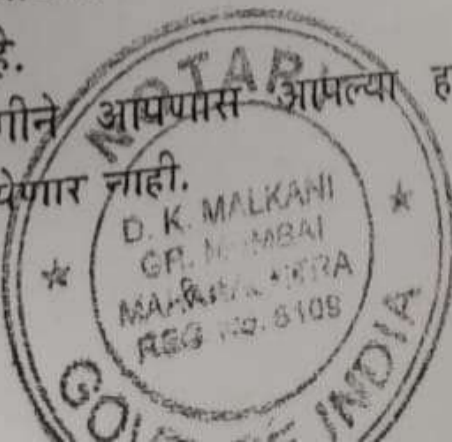 हे.
गीने आपणास आपल्या ह
येणार नाही.
NOTAR
D. K. MALKANI
GR. MUMBAI
MAHARASHTRA
REG No.
GOVT. OF INDIA